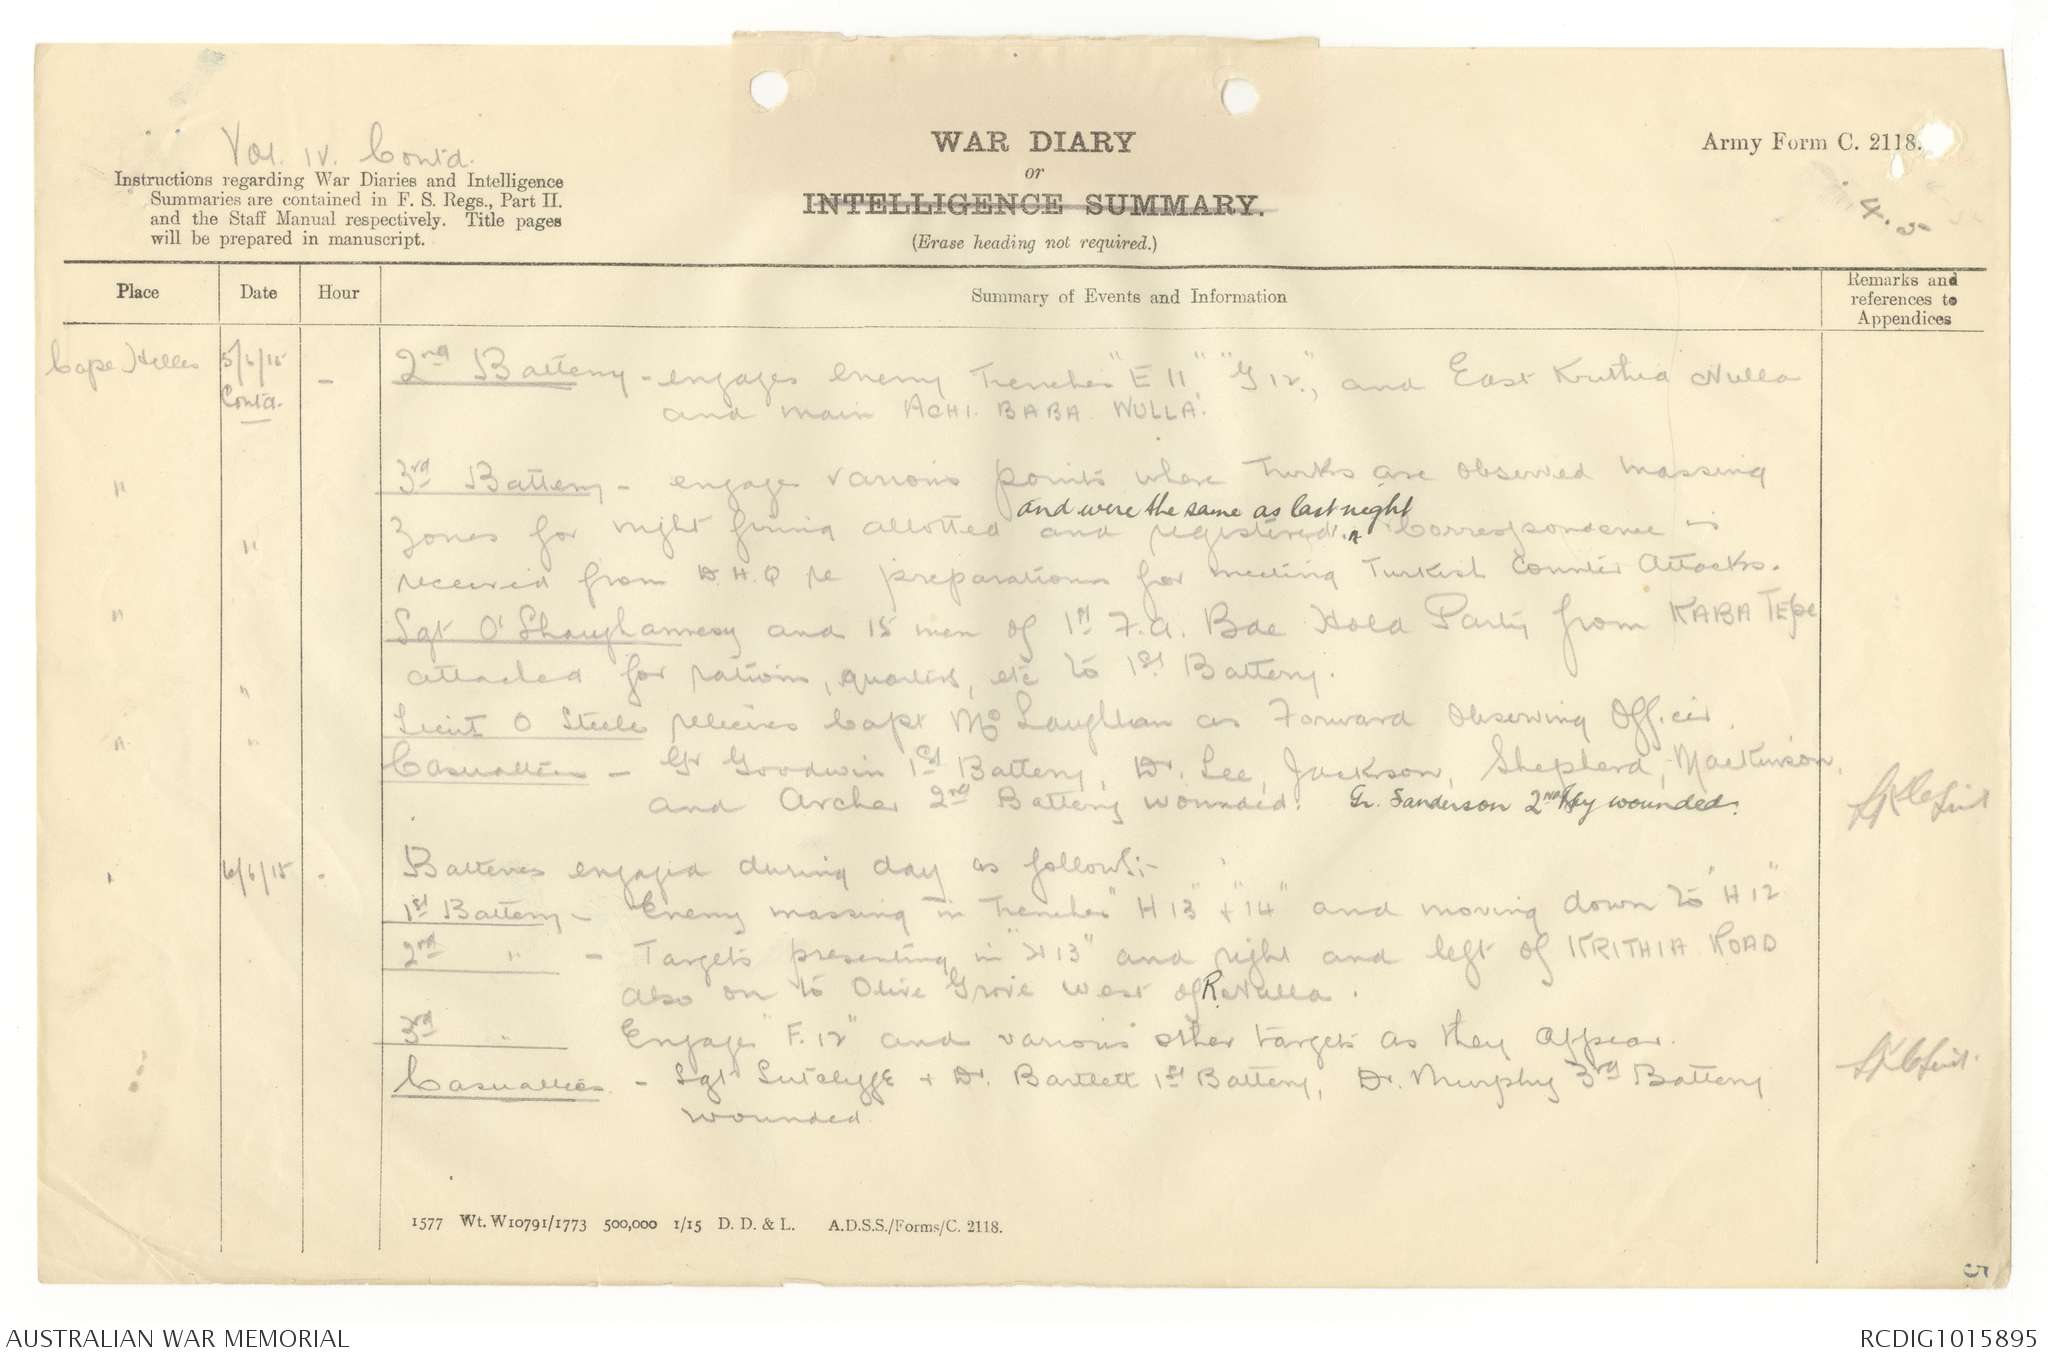 Vol. IV. Contd.
WAR DIARY
or
INTELLIGENCE SUMMARY.
(Erase heading not required.)
Army Form C. 2118.
Instructions regarding War Diaries and Intelligence
Summaries are contained in F. S. Regs., Part II.
and the Staff Manual respectively. Title pages
will be prepared in manuscript.
4.
Place Date Hour Summary of Events and Information Remarks and references to Appendices
Cape Helles 5/6/15 Contd. - 2nd Battery - engages enemy Trenches "E 11" "G 12", and East Kruthia Nulla
and main ACHI BABA NULLA.
" 3rd Battery - engage various points where Turks are observed massing
and were the same as last night
" Zones for night firing allotted and registered. Correspondence is
received from D.H.Q re preparations for meeting Turkish Counter Attacks.
" Sgt O'Shaughannesy and 15 men of 1st F.A. Bde Hold Party from KABA TEPE
attached for rations, quarters, etc to 1st Battery.
" Lieut O Steele relieves Capt McLaughlan as Forward Observing Officer.
" " Casualties - Gr Goodwin 1st Battery, Dr. Lee, Jackson, Shepherd, MacKinson,
and Archer 2nd Battery wounded. Gr. Sanderson 2nd Bty wounded.
" 6/6/15 - Batteries engaged during day as follows:-
1st Battery - Enemy massing in Trenches "H 13" & "14" and moving down to "H 12"
2nd " - Targets presenting in "H 13" and right and left of KRITHIA ROAD
also on to Olive Grove West of R. Nulla.
3rd " Engage "F. 12" and various other targets as they appear.
Casualties - Sgt Sutcliffe & Dr. Bartlett 1st Battery, Dr. Murphy 3rd Battery
wounded
1577 Wt. W10791/1773 500,000 1/15 D. D. & L. A.D.S.S./Forms/C. 2118.
5
AUSTRALIAN WAR MEMORIAL
RCDIG1015895